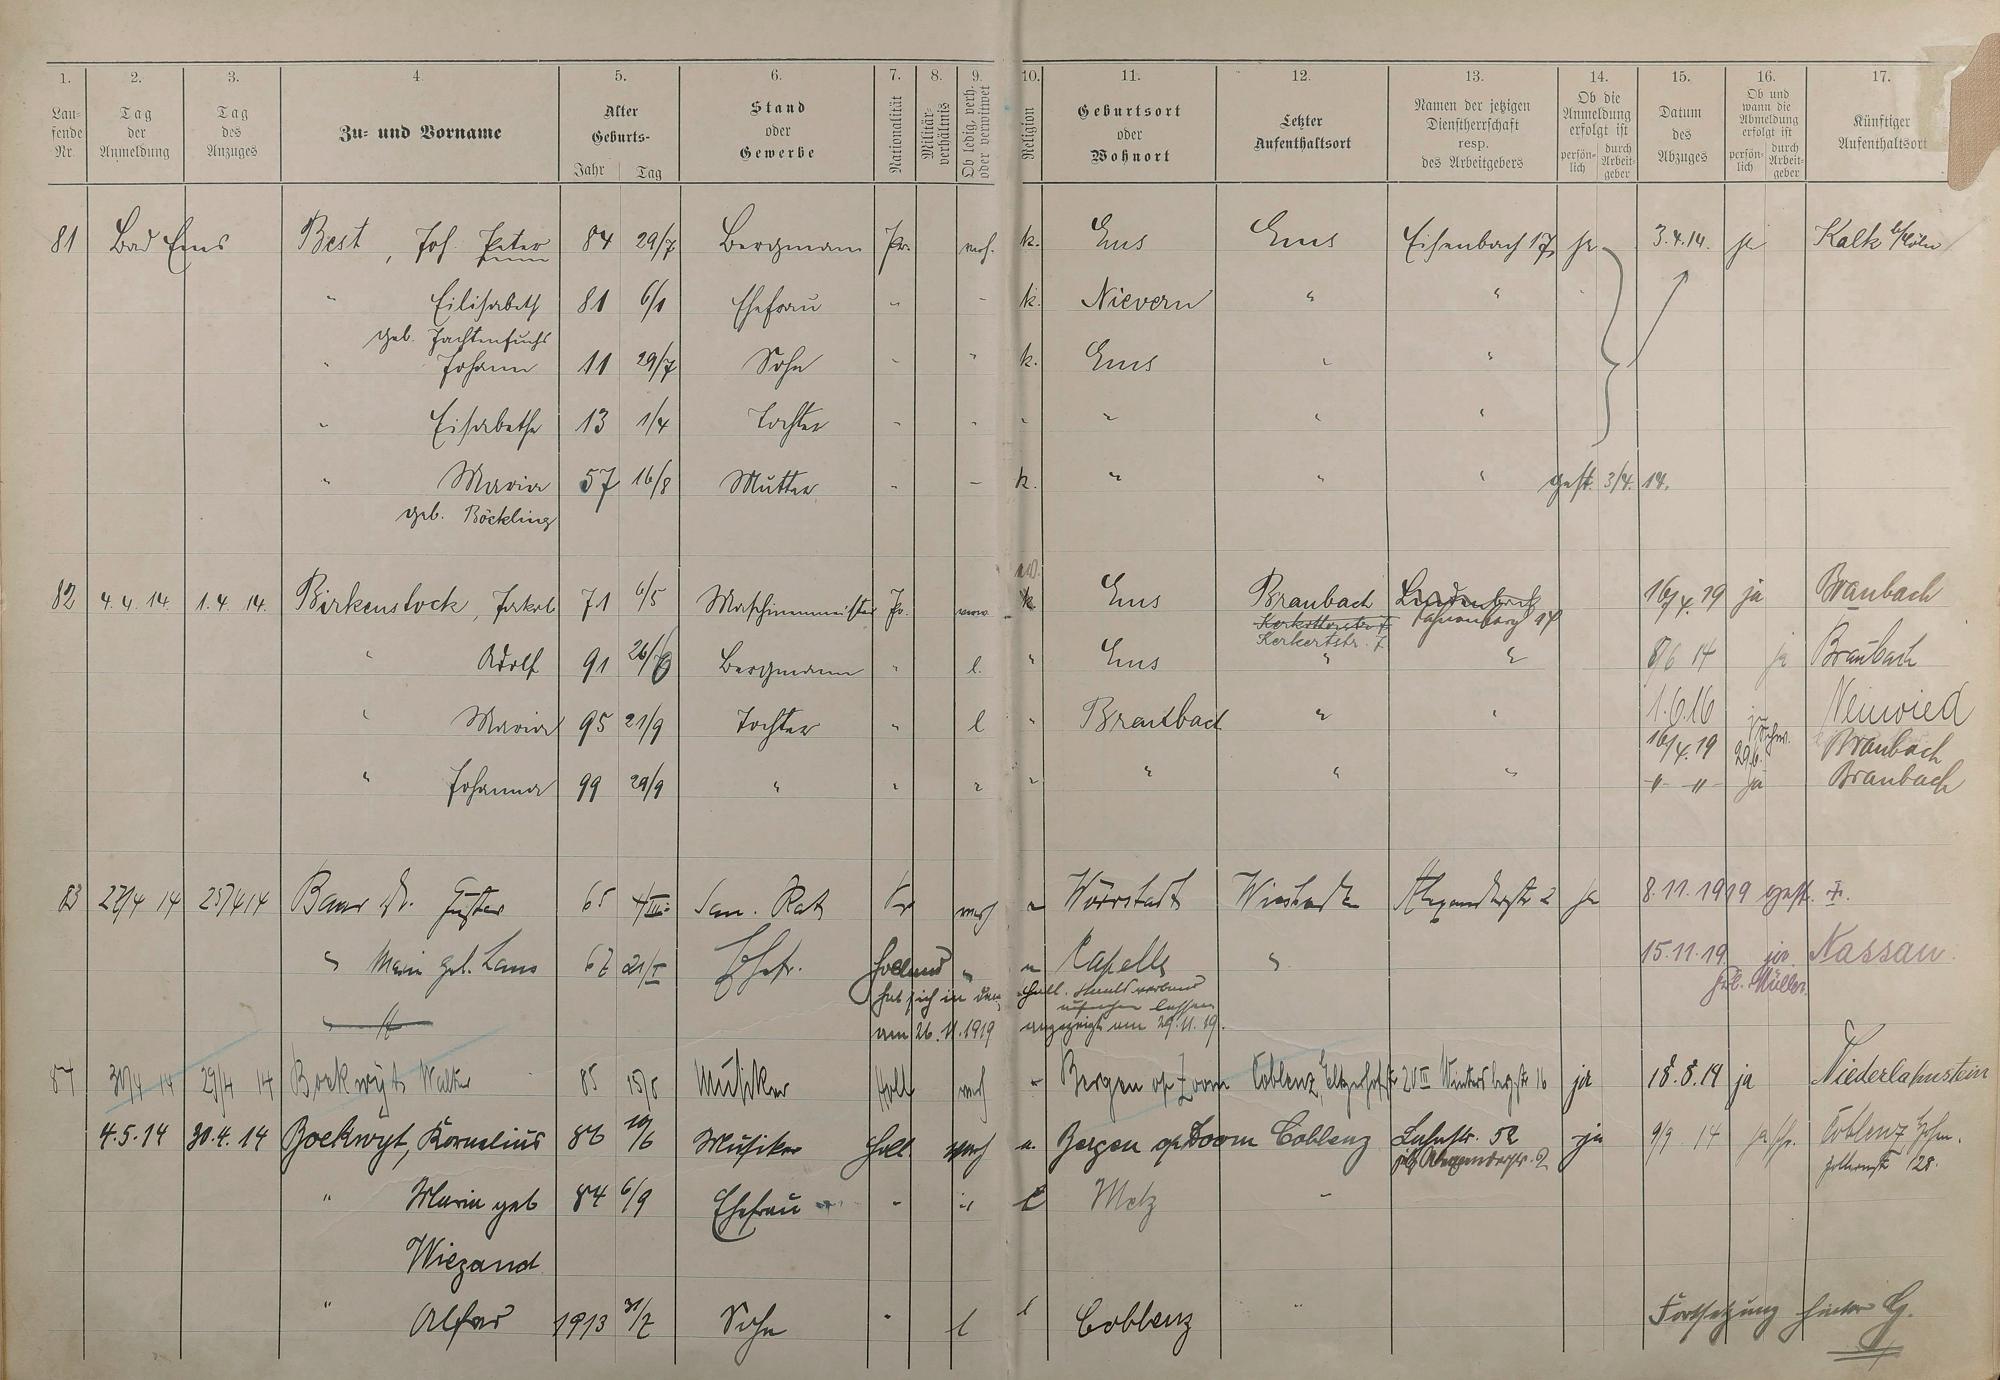 1. 2. 3. 4. 5. 6. 7. 8. 9. 10. 11. 12. 13. 14. 15. 16. 17.
Laufende Nr. Tag der Anmeldung Tag des Anzuges Zu- und Vorname Alter Geburts- Jahr Tag Stand oder Gewerbe Nationalität Militärverhältnis Ob ledig, verh. oder verwitwet Religion Geburtsort oder Wohnort Letzter Aufenthaltsort Namen der jetzigen Dienstherrschaft resp. des Arbeitgebers Ob die Anmeldung erfolgt ist persönlich durch Arbeitgeber Datum des Abzuges Ob und wann die Abmeldung erfolgt ist persönlich durch Arbeitgeber Künftiger Aufenthaltsort
81 Bad Ems Best, Joh. Peter 84 29/7 Bergmann Pr. verh. k. Ems Ems Eisenbach 17 ja 3.4.14. ja Kalk b/Cöln
" Eilisabeth 81 6/1 Ehefrau " " k. Nievern " "
geb. Fachtenfuchs
" Johann 11 29/7 Sohn " " k. Ems " "
" Eisabethe 13 1/4 Tochter " " " " " "
" Maria 57 16/8 Mutter " " k. " " " gest. 3/4. 14.
geb. Böckling
82 4.4.14. 1.4.14. Birkenstock, Jakob 71 6/5 Maschinenmeister Pr. k. Ems Braubach 16/4.19 ja Braubach
Kerkertstr. 7
" Adolf 91 26/6 Bergmann " l. " Ems " " 8/6 14 ja Braubach
" Maria 95 21/9 Tochter " l " Braubach " " 1.6.16 Neuwied
16/4.19 Braubach
" Johanna 99 29/9 " " " " " " " -"- -"- ja Braubach
83 27/4 14 25/4 14 Baar Dr. Gustav 65 San. Rat verh " Wörrstadt Wiesbaden Alexanderstr 2 ja 8.11.1919 gest.
" Maria geb. Laus 67 21/I Ehefr. Holland " " Capelle " 15.11.19. ja Nassau.
hat sich in den Holl. Staatsverband
Müller
aufnehmen lassen
am 26.11.1919 angezeigt am 29.11.19.
84 30/4 14 29/4 14 Boekwyt Walter 85 15/5 Musiker Holl verh " Bergen op Zoom Coblenz, ja 18.8.14 ja Niederlahnstein
4.5.14 30.4.14 Boekwyt, Kornelius 86 Musiker Holl verh " Bergen op Zoom Coblenz Lahnstr. 52 ja 9/9 14 Coblenz Hohen-
jetz Alexanderstr. 2 zollernstr 128.
" Maria geb 84 6/9 Ehefrau " " Metz "
Wiegand
" Alfred 1913 31/7 Sohn " l l Coblenz "
Fortsetzung hinter G.